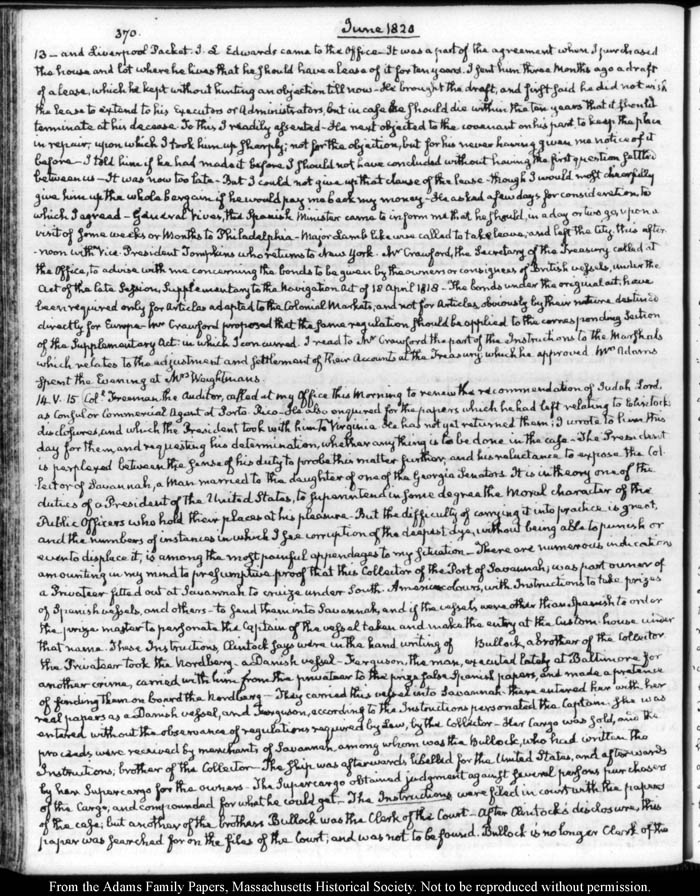 370.
June 1820
13 – and Liverpool Packet. I. L Edwards came to the Office – It was a part of the agreement when I purchased
the house and lot where he lives that he should have a lease of it for ten years. I sent him three Months ago a draft
of a lease, which he kept without hinting an objection till now – He brought the draft, and first said he did not wish
the lease to extend to his Executors or Administrators, but in case he should die within the ten years that it should
terminate at his decease. To this I readily assented – He next objected to the covenant on his part to keep the place
in repair; upon which I took him up sharply; not for the objection, but for his never having given me notice of it
before – I told him if he had made it before I should not have concluded without having the first question settled
between us – It was now too late – But I could not give up that clause of the lease – though I would most cheerfully
give him up the whole bargain if he would pay me back my money – He asked a few days for consideration, to
which I agreed – General Vives, the Spanish Minister came to inform me that he should, in a day or two go, upon a
visit of some weeks or Months to Philadelphia – Major Lamb likewise called to take leave, and left the City this after-
noon with Vice-President Tompkins who returns to New York. Mr Crawford, the Secretary of the Treasury called at
the Office, to advise with me concerning the bonds to be given by the owners or consignees of British vessels, under the
Act of the late Session, Supplementary to the Navigation Act of 18 April 1818 – The bonds under the original act, have
been required only for Articles adapted to the Colonial Markets, and not for Articles, obviously by their nature destined
directly for Europe – Mr Crawford proposed that the same regulation should be applied to the corresponding Section
of the Supplementary Act: in which I concurred. I read to Mr Crawford the part of the Instructions to the Marshals
which relates to the adjustment and settlement of their Accounts at the Treasury which he approved Mrs Adams
spent the Evening at Mrs Weightman's.
14. V. 15 Coll. Freeman, the Auditor, called at my Office this Morning to renew the recommendation of Judah Lord,
as Consul or Commercial Agent at Porto-Rico – He also enquired for the papers which he had left relating to Clintock's
disclosures, and which the President took with him to Virginia. He has not yet returned them; I wrote to him this
day for them, and requesting his determination, whether any thing is to be done in the case – The President
is perplexed between the sense of his duty to probe this matter further, and his reluctance to expose the Col-
lector of Savannah, a Man married to the daughter of one of the Georgia Senators. It is in theory one of the
duties of a President of the United States, to superintend in some degree the Moral character of the
Public Officers who hold their places at his pleasure – But the difficulty of carrying it into practice is great,
and the numbers of instances in which I see corruption of the deepest dye, without being able to punish or
even to displace it, is among the most painful appendages to my situation – There are numerous indications
amounting in my mind to presumptive proof that this Collector of the Port of Savannah, was part owner of
a Privateer fitted out at Savannah to cruize under South-American colours, with Instructions to take prizes
of Spanish vessels, and others – to send them into Savannah, and if the vessels were other than Spanish to order
the prize-master to personate the Captain of the vessel taken and make the entry at the Custom-house under
that name. These Instructions, Clintock says were in the hand writing of Bullock, a brother of the Collector
the Privateer took the Nordberg – a Danish vessel – Ferguson, the man, executed lately at Baltimore for
another crime, carried with him from the privateer to the prize false Spanish papers, and made a pretence
of finding them on board the Nordberg – They carried this vessel into Savannah – there entered her with her
real papers as a Danish vessel, and Ferguson, according to the Instructions personated the Captain. She was
entered without the observance of regulations required by Law, by the Collector – Her Cargo was sold, and the
proceeds were received by merchants of Savannah, among whom was the Bullock, who had written the
Instructions, brother of the Collector – The ship was afterwards libelled for the United States, and afterwards
by her Supercargo for the owners – The Supercargo obtained judgment against several persons purchasers
of the Cargo, and compounded for what he could get. – The Instructions were filed in court with the papers
of the case; but another of the brothers Bullock was the Clerk of the Court – After Clintock's disclosure, this
paper was searched for on the files of the Court, and was not to be found. Bullock is no longer Clerk of the
From the Adams Family Papers, Massachusetts Historical Society. Not to be reproduced without permission.